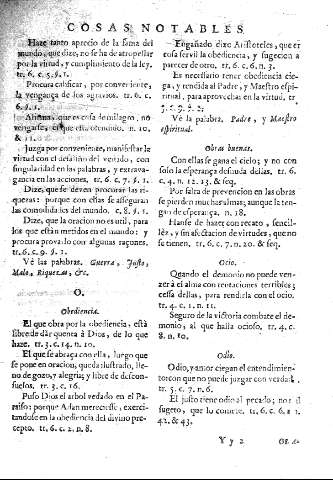 COSAS NOTABLES
Haze tanto aprecio de la fama del
mundo, que dize, no se ha de atropellar
por la virtud, y cumplimiento de la ley.
tr. 6. c. 5. §. 1.
Procura calificar, por conveniente,
la vengança de los agravios. tr. 6. c.
6. §. 1.
que es cosa de milagro, no
vengarse, el que està, ofendido. n. 10.
& 11.
Juzga por conveniente, manifestar le
virtud con el desaliño del vestido, con
singularidad en las palabras, y extrava-
gancia en las acciones. tr. 6. c. 7. §. 1.
Dize, que se deven procurar las ri-
quezas: porque con ellas se asseguran
las comodidades del mundo. c. 8. §. 1.
Dize, que la oracion no es util, para
los que estàn metidos en el mundo: y
procura provarlo con algunas razones.
tr. 6. c. 9. §. 1.
Vé las palabras. Guerra, Justo,
Malo, Riquezas, &c.
O.
Obediencia.
El que obra por la obediencia, està
libre de dàr quenta à Dios, de lo que
haze. tr. 3. c. 14. n. 10.
El que se abraça con ella, luego que
se pone en oracion, queda ilustrado, lle-
no de gozo, y alegria; y libre de descon-
suelos. tr. 3. c. 16.
Puso Dios el arbol vedado en el Pa-
raiso: porque Adan mereciesse, exerci-
tandose en la obediencia del divino pre-
cepto. tr. 6. c. 2. n. 8.
Engañado dize Aristoteles, que es
cosa servil la obediencia, y sugecion a
parecer de otro. tr. 6. c. 6. n. 3.
Es necessario tener obediencia cie-
ga, y rendida al Padre, y Maestro espi-
ritual, para aprovechar en la virtud. tr
5. c. 9. §. 2.
Vé la palabra, Padre, y Maestro
espiritual.
Obras buenas.
Con ellas se gana el cielo; y no con
solo la esperança desnuda dellas. tr. 6.
c. 4. n. 12. 13. & seq.
Por falta de prevencion en las obras
se pierden muchas almas; aunque la ten-
gan de esperança. n. 18.
Hanse de hazer con recato, senci-
llez, y sin afectacion de virtudes, que no
se tienen. tr. 6. c. 7. n. 20. & seq.
Ocio.
Quando el demonio no puede ven-
zer à el alma con tentaciones terribles;
cessa dellas, para rendirla con el ocio.
tr. 4. c. 1. n. 11.
Seguro de la victoria combate el de-
monio, al que halla ocioso. tr. 4. c.
8. n. 10.
Odio.
Odio, y amor ciegan el entendimien-
to: con que no puede juzgar con verdad.
tr. 5. c. 7. n. 6.
El justo tiene odio al pecado; no al
sugeto, que lo comete. tr. 6. c. 6.
42. & 43.
Y y 2